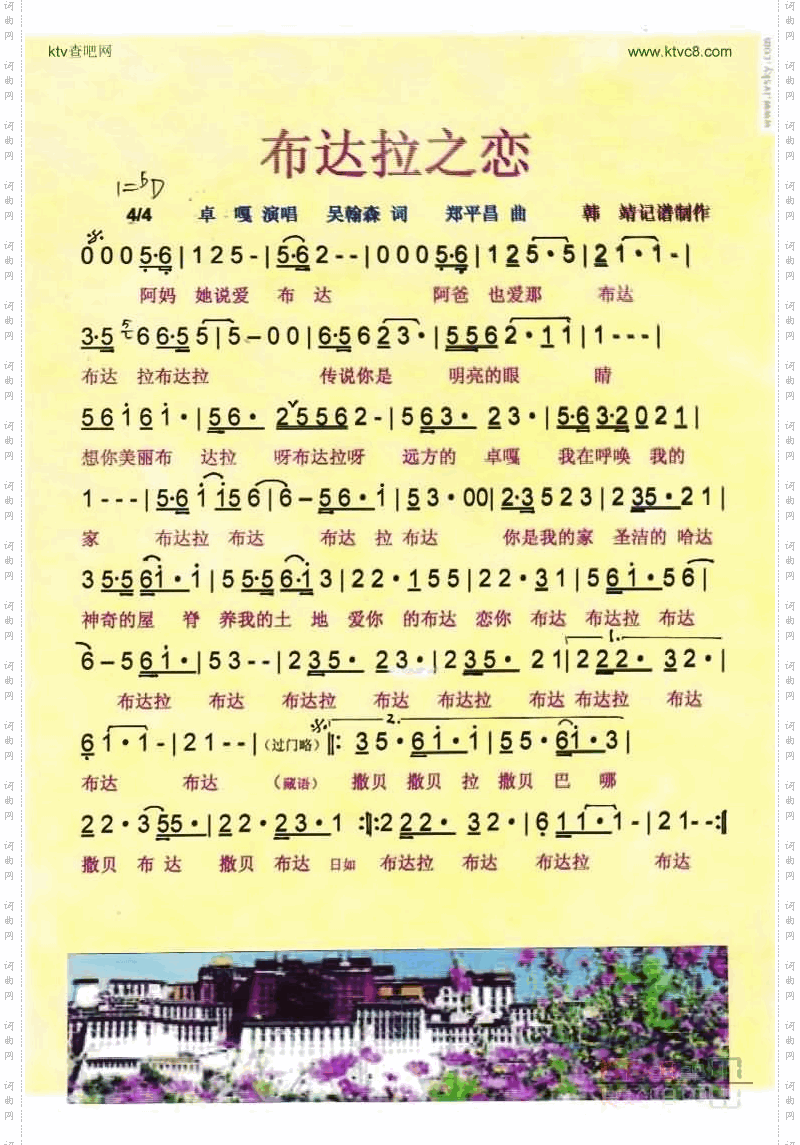 ktv查吧网 www.ktvc8.com
布达拉之恋
1=♭D
4/4 卓 嘎 演唱 吴翰森 词 郑平昌 曲 韩 靖记谱制作
0 0 0 5·6 | 1 2 5 - | 5·6 2 - - | 0 0 0 5·6 | 1 2 5 · 5 | 2 1 · 1 - |
阿妈 她说爱 布 达 阿爸 也爱那 布达
3·5 6 6·5 5 | 5 – 0 0 | 6·5 6 2 3 · | 5 5 6 2 · 1 1 | 1 - - - |
布达 拉布达拉 传说你是 明亮的眼 睛
5 6 i 6 i · | 5 6 · 2 5 5 6 2 - | 5 6 3 · 2 3 · | 5·6 3·2 0 2 1 |
想你美丽布 达拉 呀布达拉呀 远方的 卓嘎 我在呼唤 我的
1 - - - | 5·6 i i 5 6 | 6 – 5 6 · i | 5 3 · 0 0 | 2·3 5 2 3 | 2 3 5 · 2 1 |
家 布达拉 布达 布达 拉 布达 你是我的家 圣洁的 哈达
3 5·5 6 i · i | 5 5·5 6·i 3 | 2 2 · 1 5 5 | 2 2 · 3 1 | 5 6 i · 5 6 |
神奇的屋 脊 养我的土 地 爱你 的布达 恋你 布达 布达拉 布达
6 – 5 6 i · | 5 3 - - | 2 3 5 · 2 3 · | 2 3 5 · 2 1 | 1. 2 2 2 · 3 2 · |
布达拉 布达 布达拉 布达 布达拉 布达 布达拉 布达
6 1 · 1 - | 2 1 - - | (过门略) 2. ‖: 3 5 · 6 i · i | 5 5 · 6 i · 3 |
布达 布达 (藏语) 撒贝 撒贝 拉 撒贝 巴 哪
2 2 · 3 5 5 · | 2 2 · 2 3 · 1 :‖: 2 2 2 · 3 2 · | 6 1 1 · 1 - | 2 1 - - :‖
撒贝 布 达 撒贝 布达 日如 布达拉 布达 布达拉 布达